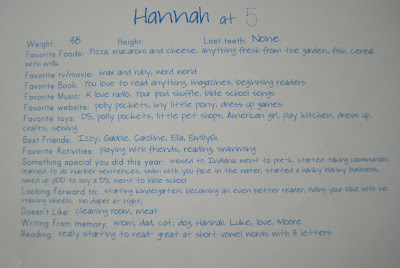 Hannah at 5
Weight: 38 Height: Lost teeth: None
Favorite Foods: Pizza, macaroni and cheese, anything fresh from the garden, fish, cereal
with milk
Favorite tv/movie: max and ruby, word world
Favorite Book: You love to read anything, magazines, beginning readers
Favorite Music: K love radio, Your pod shuffle, bible school songs
Favorite website: polly pockets, my little pony, dress up games
Favorite toys: DS, polly pockets, little pet shops, American girl, play kitchen, dress up,
crafts, sewing
Best Friends: Izzy, Gabbie, Caroline, Ella, EmilyG.
Favorite Activities: playing with friends, reading, swimming
Something special you did this year: moved to Indiana, went to pre-k, started taking communion,
learned to do number sentences, swim with you face in the water, started a hanky blanky business,
saved up $100 to buy a DS, went to bible school
Looking forward to: starting kindergarten, becoming an even better reader, riding your bike with no
training wheels, no diaper at night.
Doesn't Like: cleaning room, meat
Writing from memory: mom, dad, cat, dog, Hannah, Luke, love, Moore
Reading: really starting to read- great at short vowel words with 3 letters